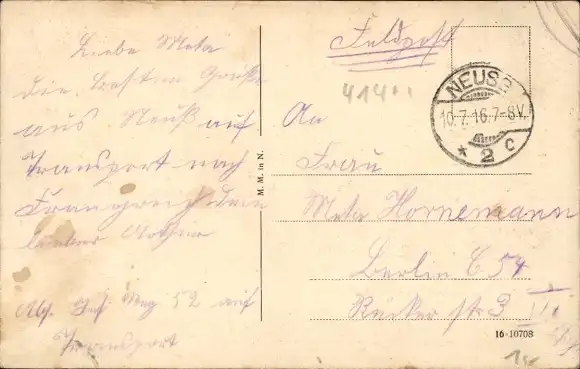 Liebe Meta
die besten Grüße
aus Neuß auf
Transport nach
Frangreich dein
lieber
Abs. Jnf Reg 52 auf
Transport
M. M. in N.
Feldpost
414
NEUSS
10.7.16.7-8V.
* 2 c
An
Frau
Meta Hornemann
Berlin C 54
Rücker str 3
III
16-10708